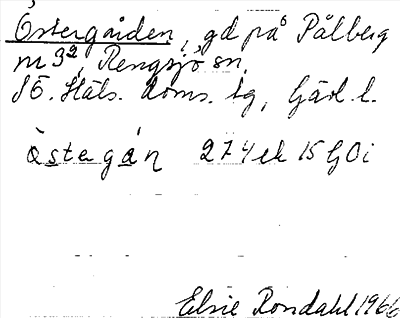 Östergården, gd på Pålberg
nr 3², Rengsjö sn,
SÖ. Häls. doms. tg, Gävl. l.
Östegån 274 ek 15 GOi
Elsie Rondahl 1966